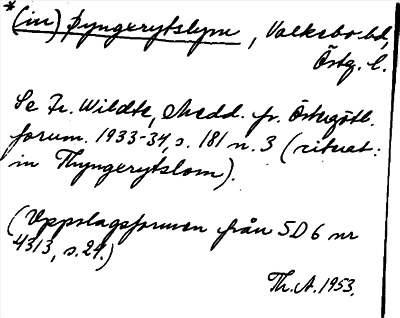 *(in) þyngerytslym, Valkebo hd,
Östg. l.
Se Fr. Wildte, Medd. fr. Östergötl.
fornm. 1933-34, s. 181 n. 3 (citerat:
in Thyngerytslom).
(Uppslagsformen från SD 6 nr
4313, s. 29.)
Th. A. 1953.